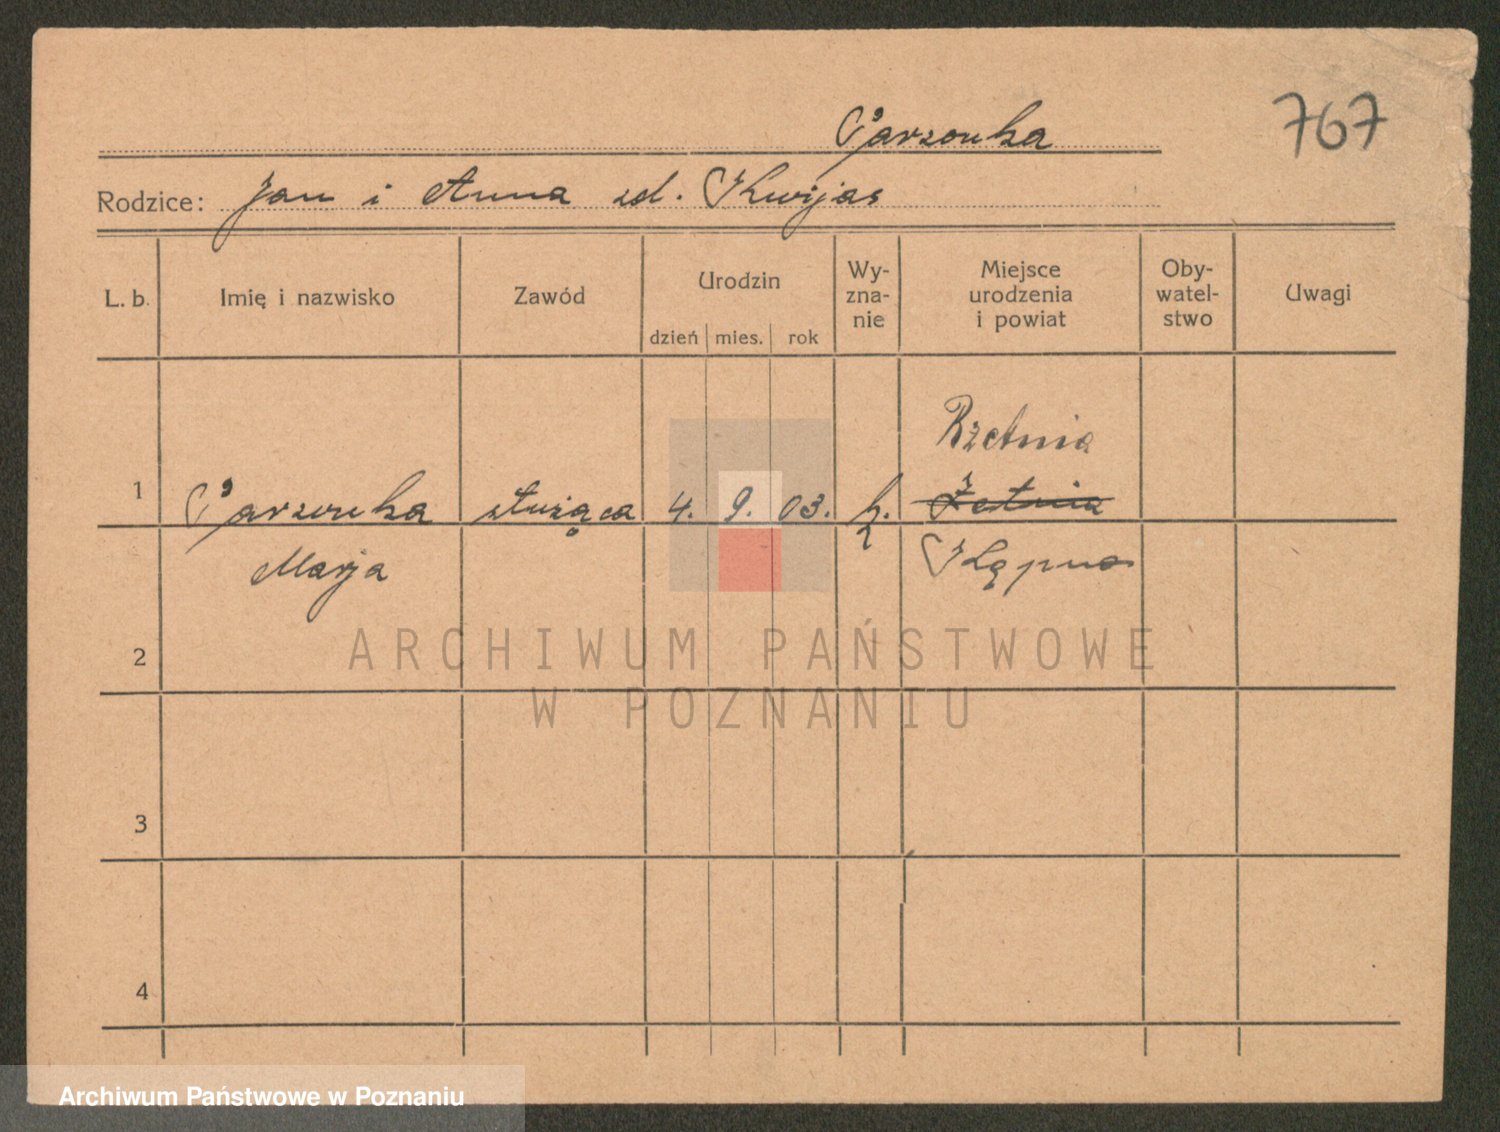 767
Parzonka
Rodzice: Jan i Anna zd. Kwijas
L. b.
Imię i nazwisko
Zawód
Urodzin
dzień mies. rok
Wy-
zna-
nie
Miejsce
urodzenia
i powiat
Oby-
watel-
stwo
Uwagi
Rzetnia
1 Parzonka służąca 4. 9. 03. k. Żetnia
Marja Kępno
2
3
4
ARCHIWUM PAŃSTWOWE
W POZNANIU
Archiwum Państwowe w Poznaniu